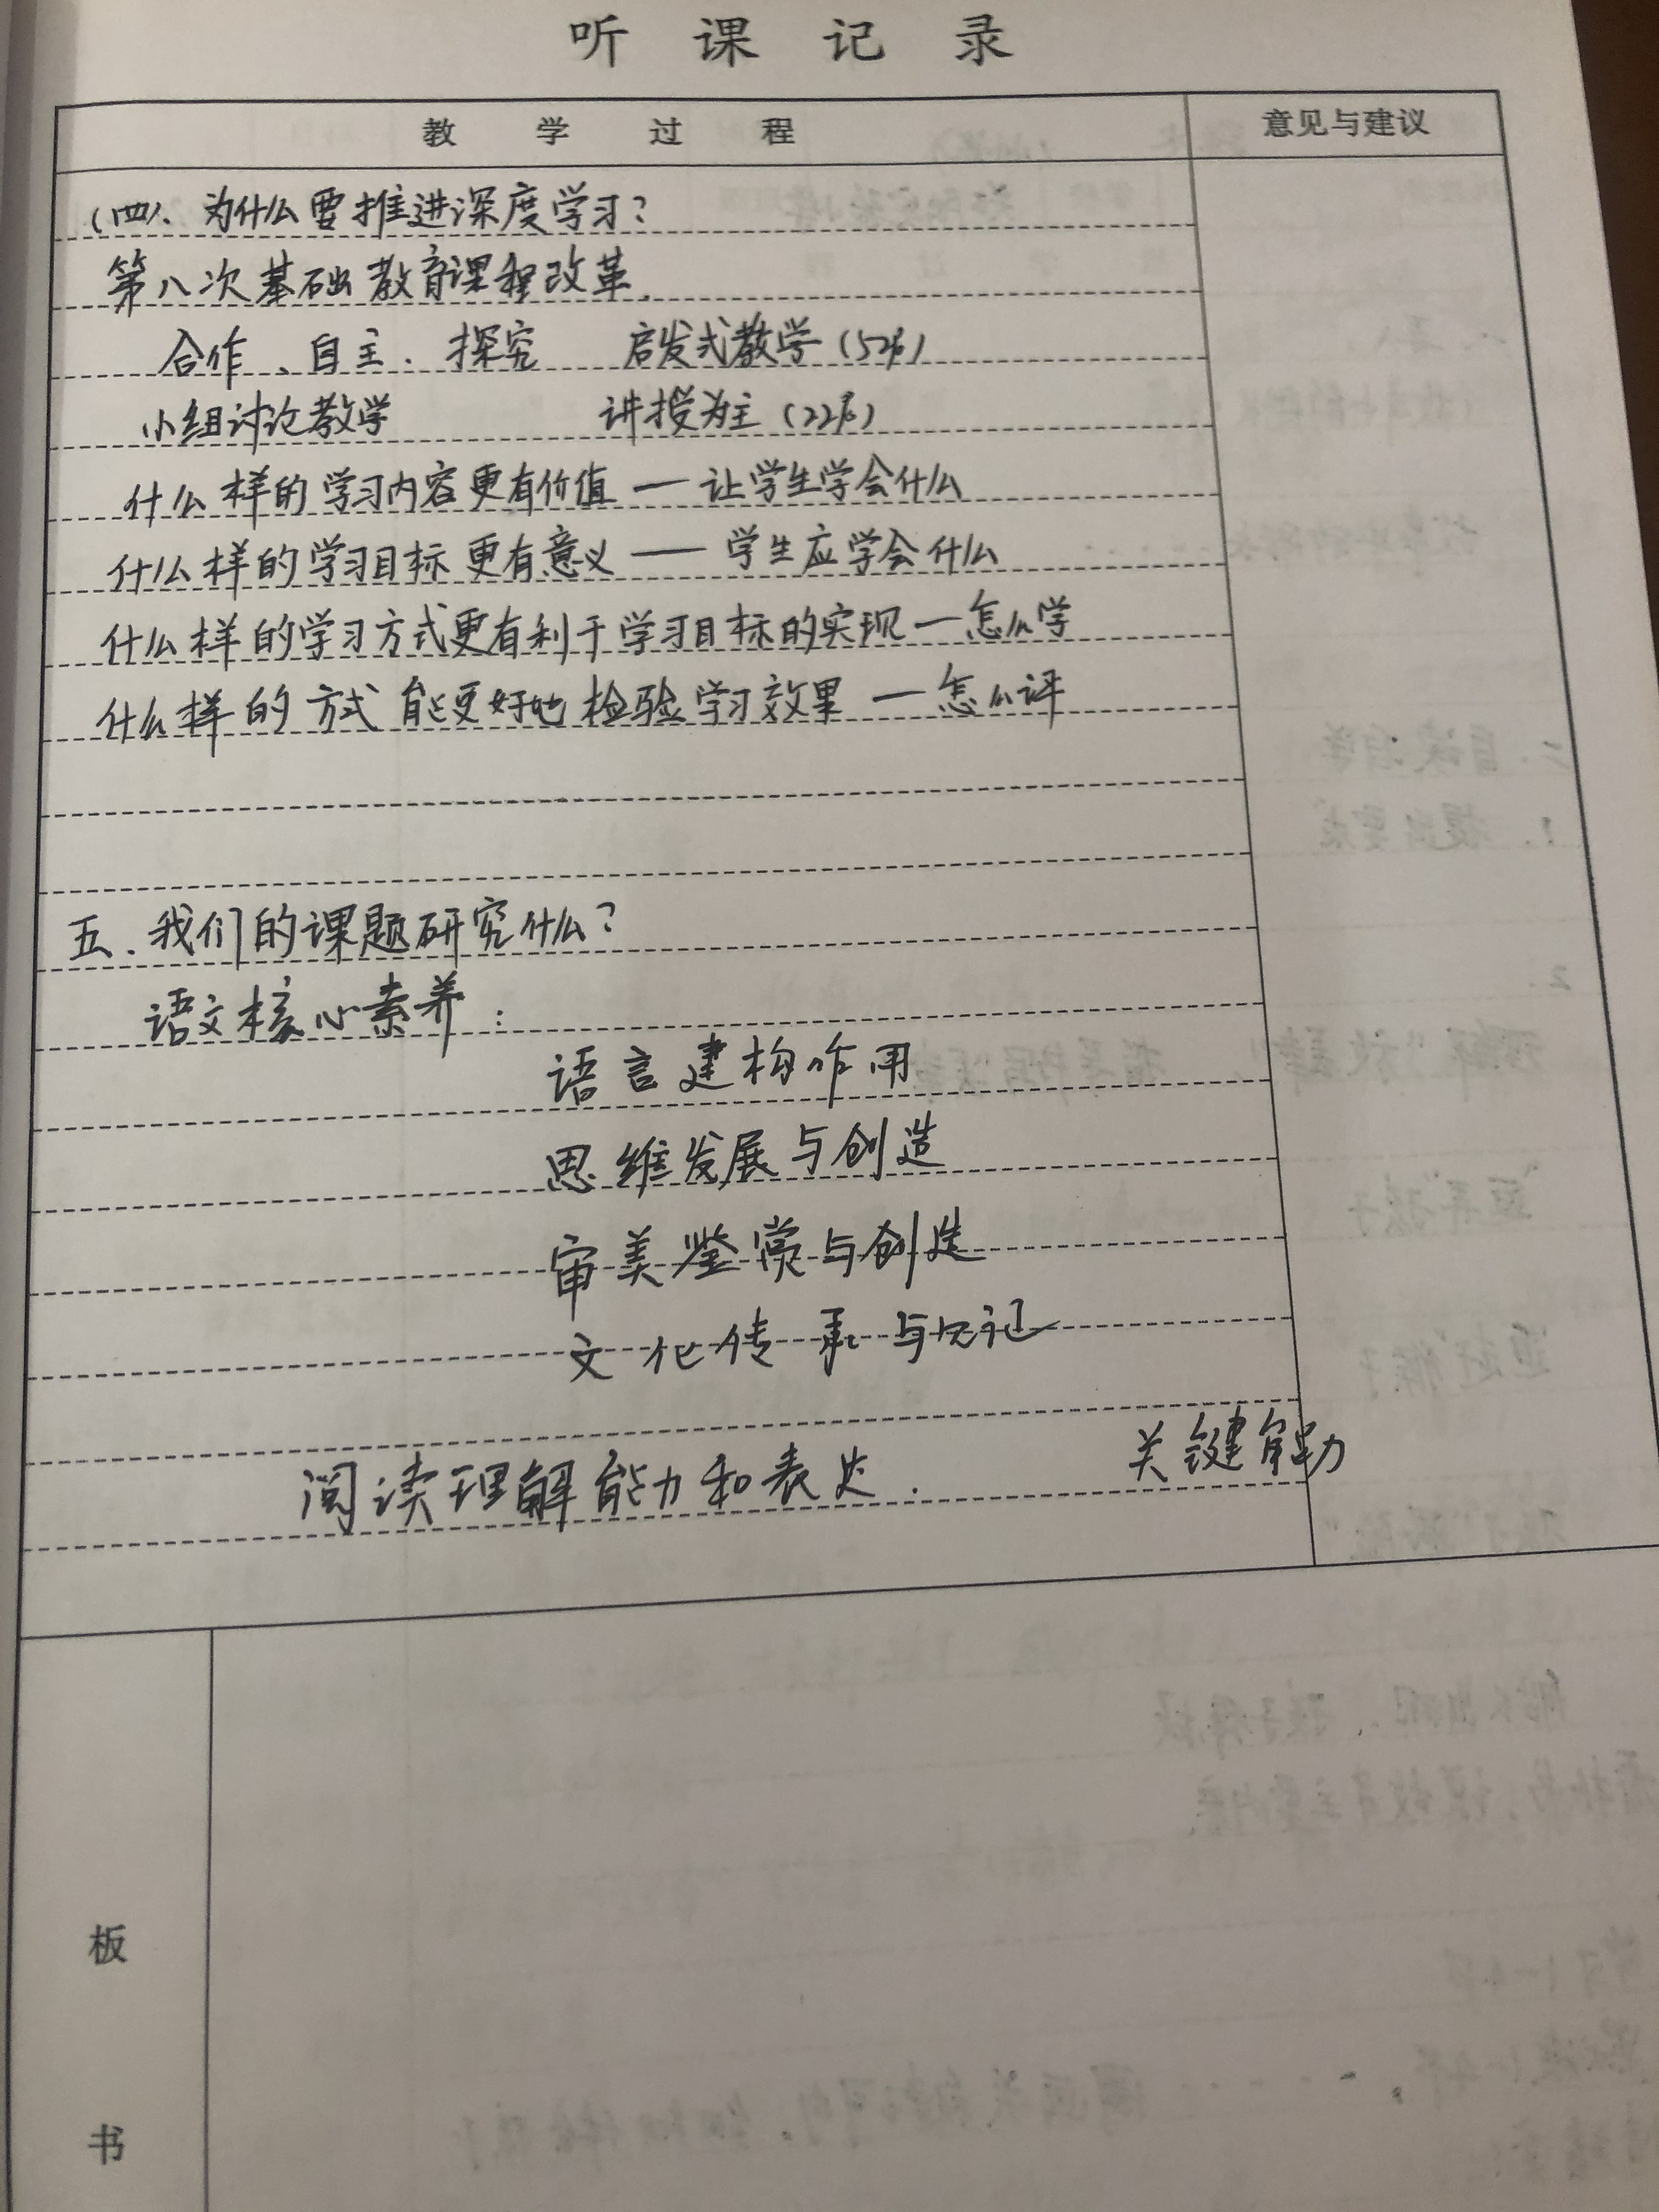 听课记录
教学过程 意见与建议
(四)、为什么要推进深度学习?
第八次基础教育课程改革.
合作、自主.探究 启发式教学(52%)
小组讨论教学 讲授为主(22%)
什么样的学习内容更有价值—让学生学会什么
什么样的学习目标更有意义——学生应学会什么
什么样的学习方式更有利于学习目标的实现—怎么学
什么样的方式能更好地检验学习效果—怎么评
五.我们的课题研究什么?
语文核心素养:
语言建构作用
思维发展与创造
审美鉴赏与创造
文化传承与
阅读理解能力和表达. 关键能力
板
书